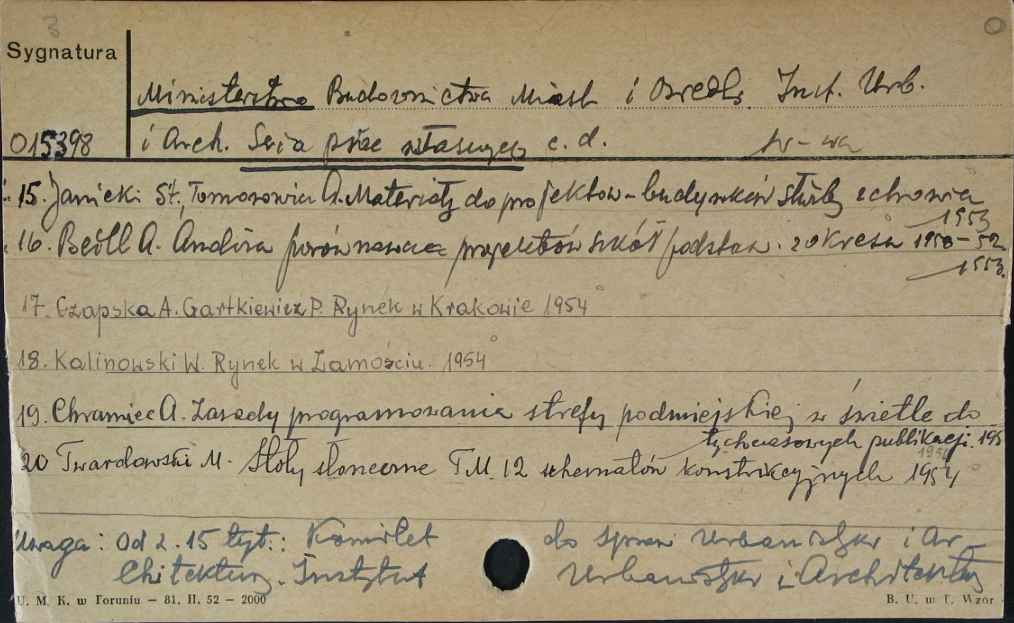 3
Sygnatura
Ministerstwo Budownictwa Miast i Osiedli. Inst. Urb.
015398 i Arch. Seria prac własnych c. d. W-wa
15. Janicki St., Tomorowicz A. Materiały do projektow. budynków służby zdrowia
1953
16. Bedll A. Analiza porównawcza projektów szkół podstaw. z okresu 1950-52
1953.
17. Czapska A. Gartkiewicz P. Rynek w Krakowie 1954
18. Kalinowski W. Rynek w Zamościu. 1954
19. Chramiec A. Zasady programowania strefy podmiejskiej w świetle do
tychczasowych publikacji. 195
1954
20 Twardowski M. słoneczne T.M. 12 schematów konstrukcyjnych 1954
Uwaga: Od z. 15 tyt.: Komitet do spraw Urbanistyki i Ar-
chitektury. Instytut Urbanistyki i Architektury
U. M. K. w Toruniu – 81. II. 52 – 2000 B. U. w T. Wzór